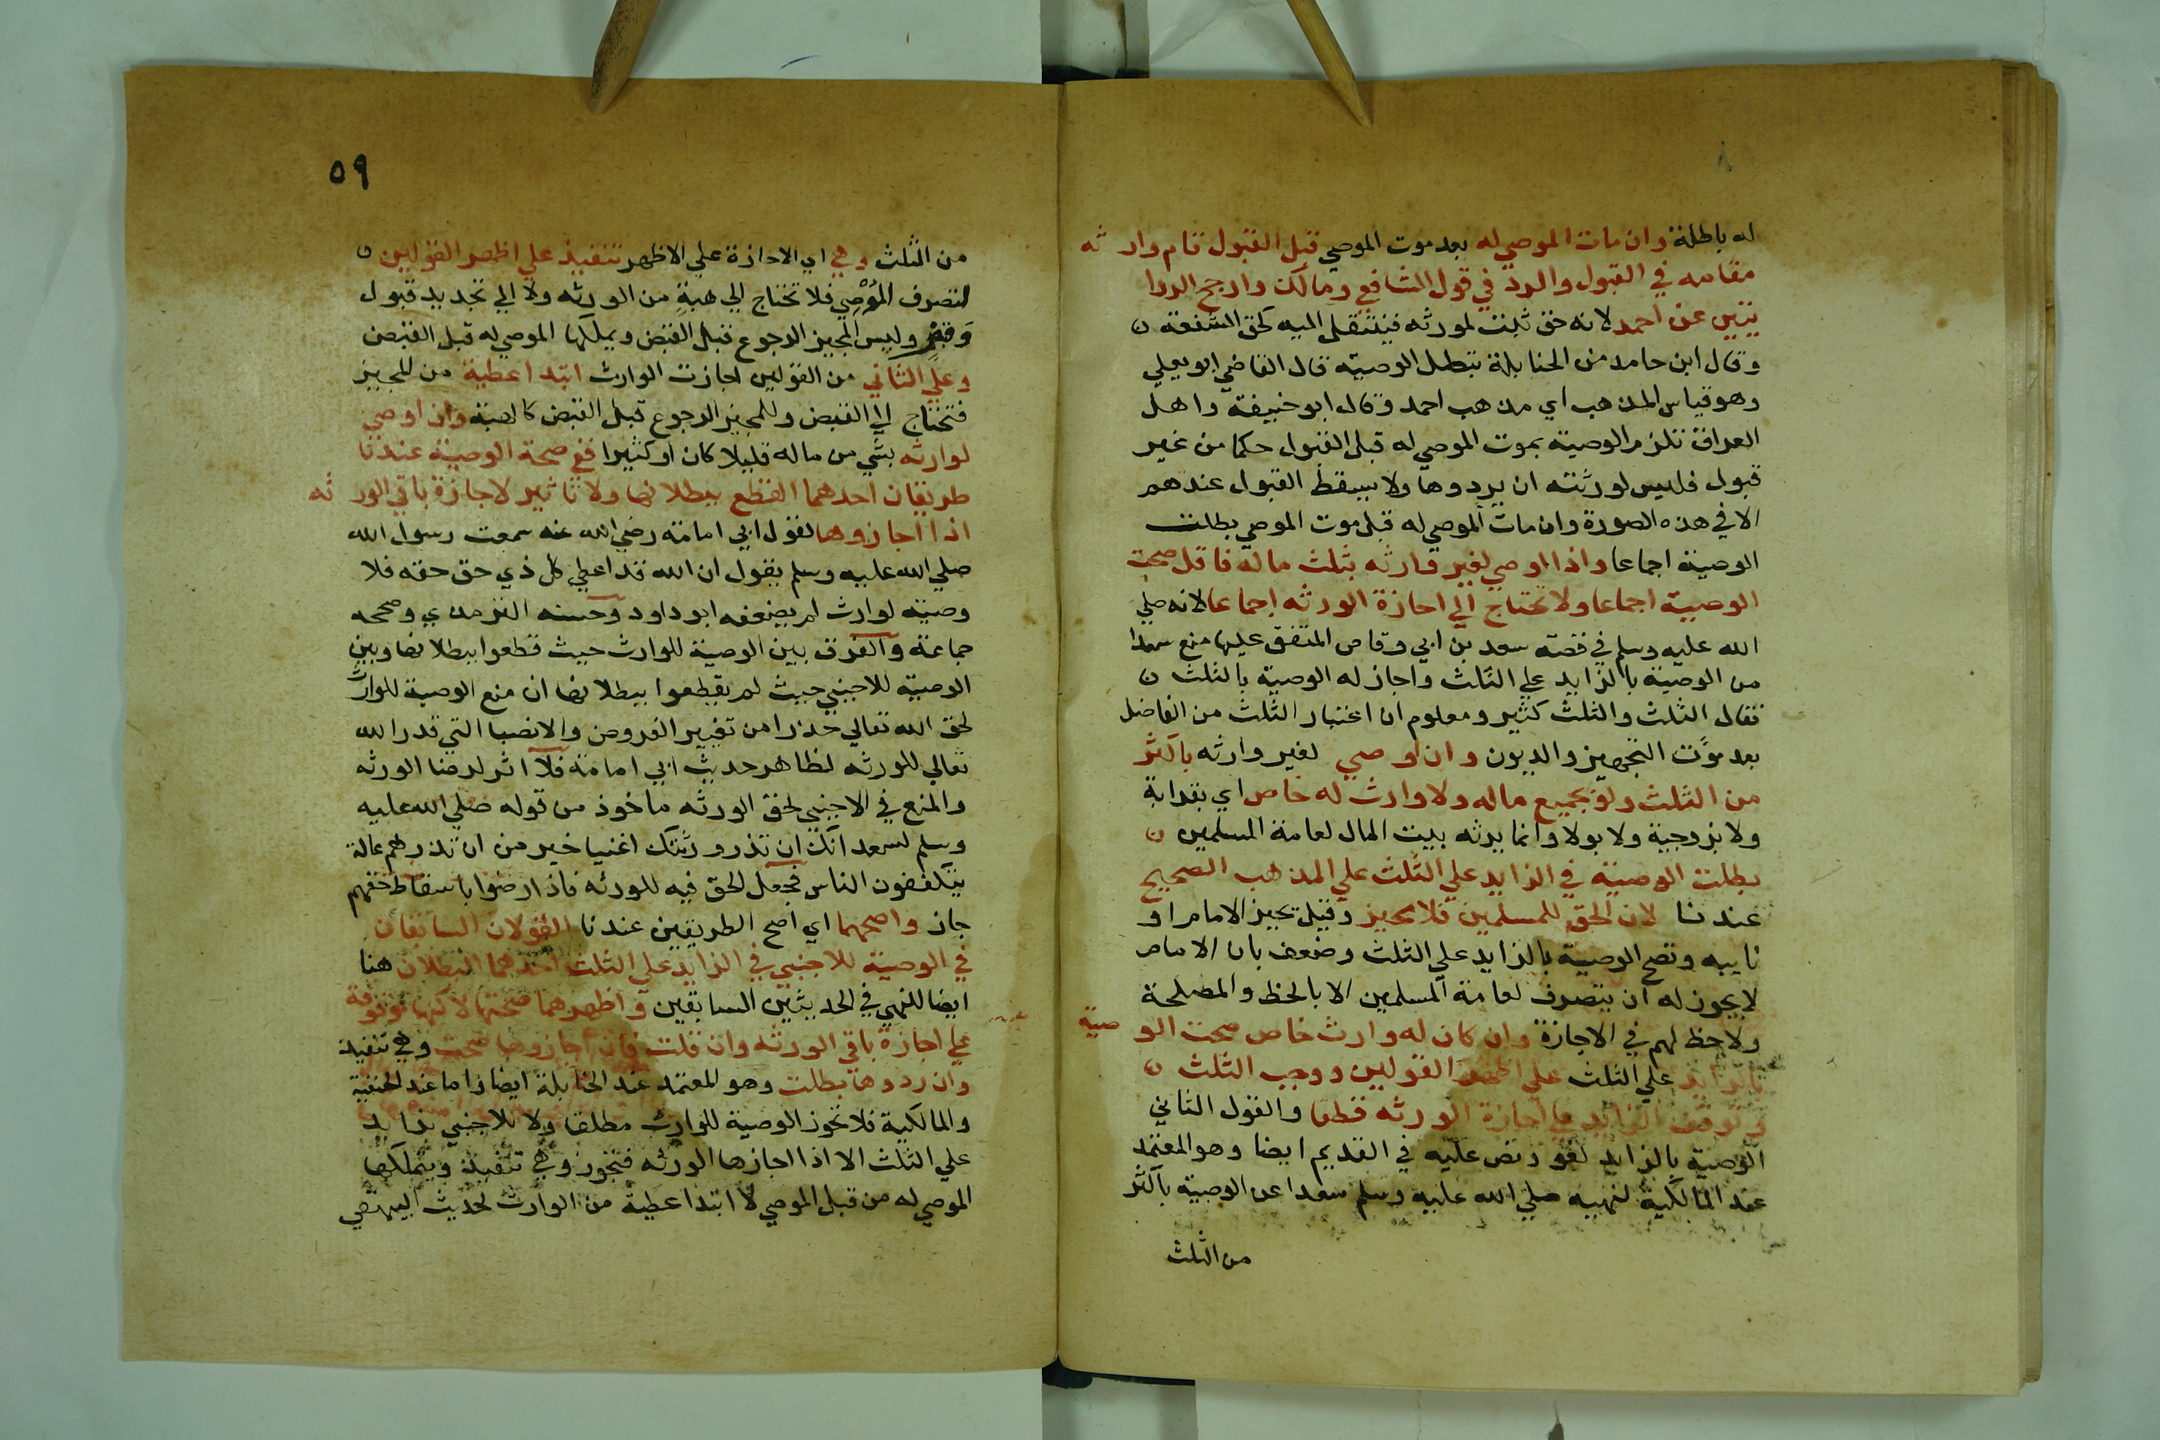 له باطلة وان مات الموصي له بعد موت الموصي قبل القبول قام وارثه
مقامه في القبول والرد في قول الشافعي ومالك وارجح الروا
يتين عن احمد لانه حق ثبت لمورثه فينتقل اليه كحق الشفعة ن
وقال ابن حامد من الحنابلة تبطل الوصية قال القاضي ابو يعلي
وهو قياس المذهب اي مذهب احمد وقال ابو حنيفة واهل
العراق تلزم الوصية بموت الموصي له قبل القبول حكما من غير
قبول فليس لورثته ان يردوها ولا يسقط القبول عندهم
الا في هذه الصورة وان مات الموصي له قبل موت الموصي بطلت
الوصية اجماعا واذا اوصي لغير وارثه بثلث ماله فاقل صحت
الوصية اجماعا ولا تحتاج الي اجازة الورثه اجماعا لانه صلي
الله عليه وسلم في قصة سعد بن ابي وقاص المتفق عليها منع سعدا
من الوصية بالزايد علي الثلث واجاز له الوصية بالثلث ن
فقال الثلث والثلث كثير ومعلوم ان اعتبار الثلث من الفاضل
بعد مؤن التجهيز والديون وان اوصي لغير وارثه باكثر
من الثلث ولو بجميع ماله ولا وارث له خاص اي بقرابة
ولا بزوجية ولا بولا وانما يرثه بيت المال لعامة المسلمين ن
بطلت الوصية في الزايد علي الثلث علي المذهب الصحيح
عندنا لان الحق للمسلمين فلا مجيز وقيل يجيز الامام او
نايبه وتصح الوصية بالزايد علي الثلث وضعف بان الامام
لا يجوز له ان يتصرف لعامة المسلمين الا بالحظ والمصلحة
ولا حظ لهم في الاجازة وان كان له وارث خاص صحت الوصية
بالزايد علي الثلث علي اظهر القولين ووجب الثلث ن
وتوقف الزايد علي اجازة الورثه قطعا والقول الثاني
الوصية بالزايد لغو ونص عليه في القديم ايضا وهو المعتمد
عند المالكية لنهيه صلي الله عليه وسلم سعدا عن الوصية باكثر
من الثلث
٥٩
من الثلث وهي اي الاجازة علي الاظهر تنفيذ علي اظهر القولين ن
لتصرف المُوْصِي فلا تحتاج الي هبةٍ من الورثه ولا الي تجديد قبول
وقبض وليس للمجيز الرجوع قبل القبض ويملكها الموصي له قبل القبض
وعلي الثاني من القولين اجازت الوارث ابتدا عطية من المجيز
فتحتاج الي القبض وللمجيز الرجوع قبل القبض كالهبة وان اوصي
لوارثه بشي من ماله قليلا كان او كثيرا ففي صحة الوصية عندنا
طريقان احدهما القطع ببطلانها ولا تاثير لاجازة باقي الورثه
اذا اجازوها لقول ابي امامة رضي الله عنه سمعت رسول الله
صلي الله عليه وسلم يقول ان الله قد اعطي كل ذي حق حقه فلا
وصية لوارث لم يضعفه ابو داود وحسنه الترمذي وصححه
جماعة والفرق بين الوصية للوارث حيث قطعوا ببطلانها وبين
الوصية للاجنبي حيث لم يقطعوا ببطلانها ان منع الوصية للوارث
لحق الله تعالي حذرا من تغيير الفروض والانصبا التي قدر الله
تعالي للورثه لظاهر حديث ابي امامة فلا اثر لرضا الورثه
والمنع في الاجنبي لحق الورثه ماخوذ من قوله صلي الله عليه
وسلم لسعد انك ان تذر ورثتك اغنيا خير من ان تذرهم عالة
يتكففون الناس فجعل الحق فيه للورثه فاذا رضوا باسقاط حقهم
جاز واصحهما اي اصح الطريقين عندنا القولان السابقان
في الوصية للاجنبي في الزايد علي الثلث احدهما البطلان هنا
ايضا للنهي في الحديثين السابقين واظهرهما صحتها لاكنها موقوفة
علي اجازة باقي الورثه وان قلت فان اجازوها صحت وهي تنفيذ
وان ردوها بطلت وهو المعتمد عند الحنابلة ايضا واما عند الحنفية
والمالكية فلا تجوز الوصية للوارث مطلقا ولا للاجنبي بزايد
علي الثلث الا اذا اجازها الورثه فتجوز وهي تنفيذ ويتملكها
الموصي له من قبل الموصي لا ابتدا عطية من الوارث لحديث البيهقي